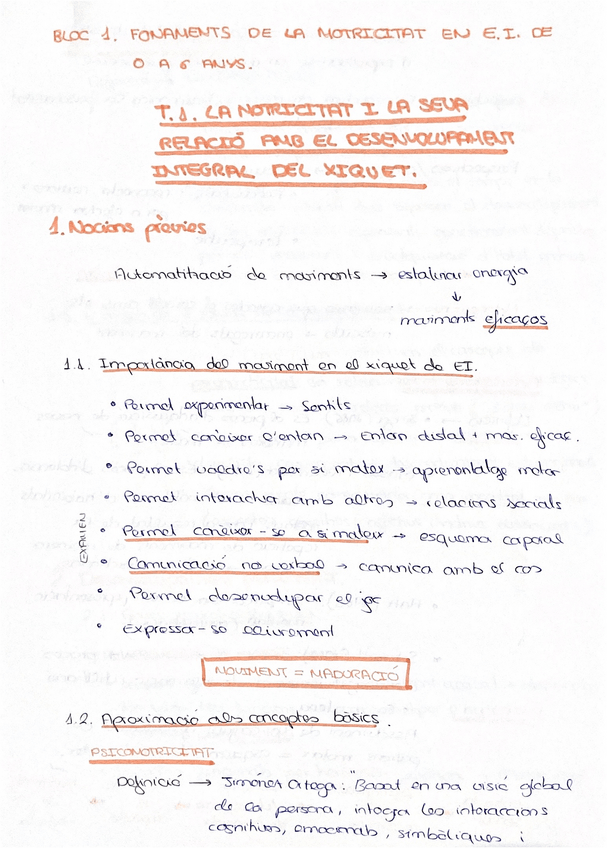 BLOC 1. FONAMENTS DE LA MOTRICITAT EN E.I. DE
0 A 6 ANYS.
T.1. LA MOTRICITAT I LA SEUA
RELACIÓ AMB EL DESENVOLUPAMENT
INTEGRAL DEL XIQUET.
1. Nocions prèvies
Automatització de moviments → estalviar energia
↓
moviments eficaços
1.1. Importància del moviment en el xiquet de EI.
• Permet experimentar → Sentits
• Permet conèixer l'entorn → Entorn distal + mov. eficaç.
• Permet valdre's per si mateix → aprenentatge motor
• Permet interactuar amb altres → relacions socials
EXAMEN
• Permet conèixer-se a si mateix → esquema corporal
• Comunicació no verbal → comunica amb el cos
• Permet desenvolupar el joc
• Expressar-se lliurement
MOVIMENT = MADURACIÓ
1.2. Aproximació als conceptes bàsics.
PSICOMOTRICITAT
Definició → Jiménez Ortega: "Basat en una visió global
de la persona, integra les interaccions
cognitives, emocionals, simbòliques i